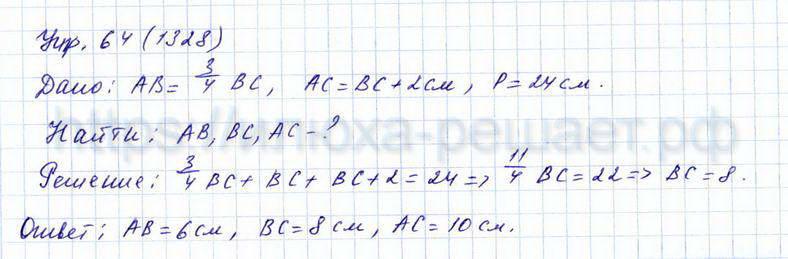 Упр. 64 (1328)
Дано: AB = 3/4 BC, AC = BC + 2 см, P = 24 см.
Найти: AB, BC, AC - ?
Решение: 3/4 BC + BC + BC + 2 = 24 => 11/4 BC = 22 => BC = 8.
Ответ: AB = 6 см, BC = 8 см, AC = 10 см.